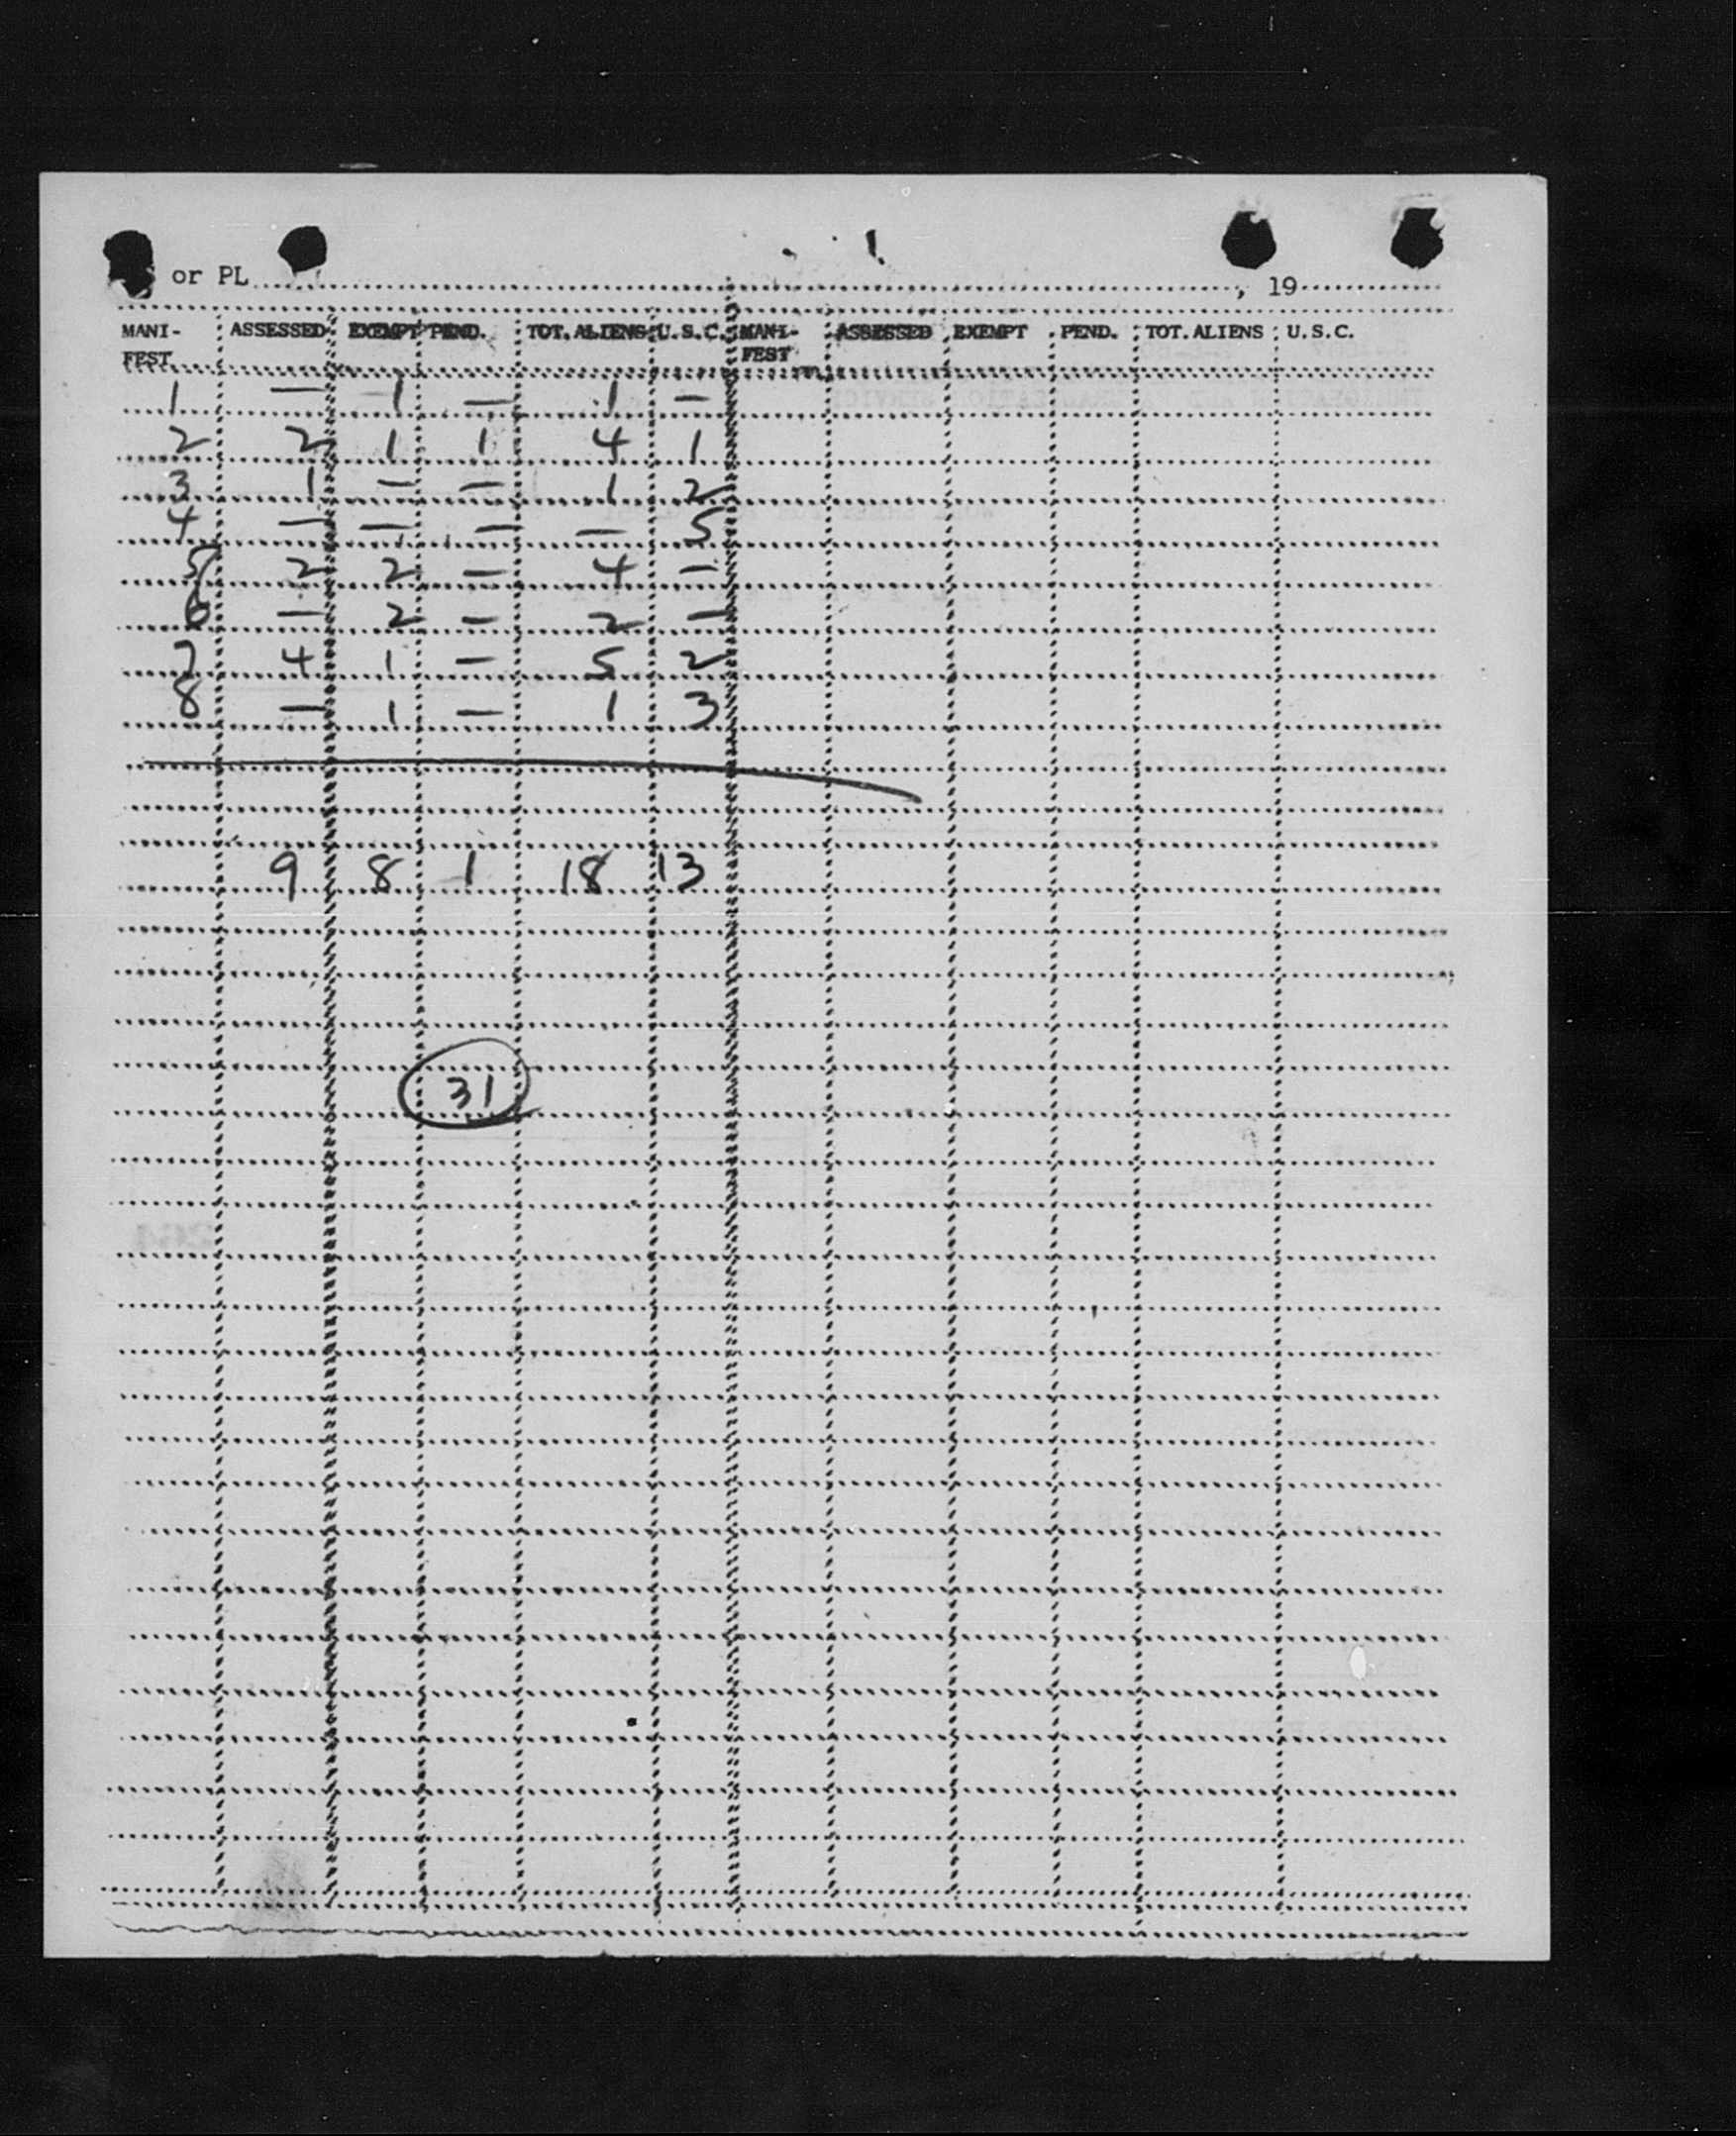 or PL , 19
MANI- ASSESSED EXEMPT PEND. TOT. ALIENS U.S.C. MANI- ASSESSED EXEMPT PEND. TOT. ALIENS U.S.C.
FEST FEST
1 — 1 — 1 —
2 2 1 1 4 1
3 1 — — 1 2
4 — — — — 5
5 2 2 — 4 —
6 — 2 — 2 —
7 4 1 — 5 2
8 — 1 — 1 3
9 8 1 18 13
31